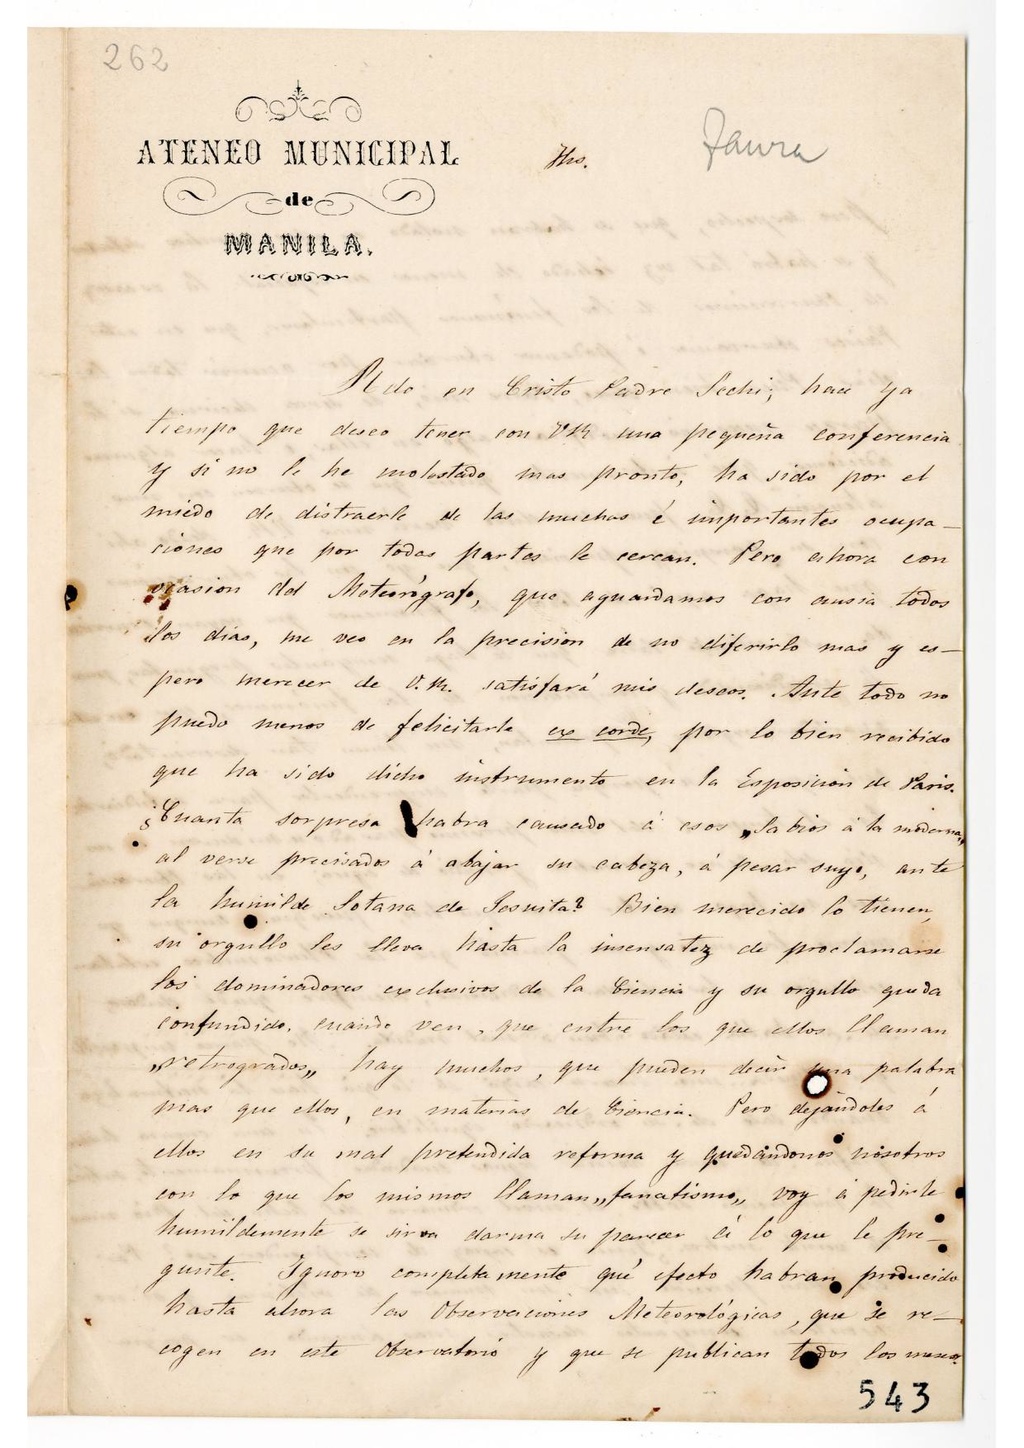 262
ATENEO MUNICIPAL
de
MANILA.
Jhs.
Faura
Rdo en Cristo Padre Sechi; hace ya
tiempo que deseo tener con V.R. una pequeña conferencia
y si no le he molestado mas pronto, ha sido por el
miedo de distraerle de las muchas é importantes ocupa—
ciones que por todas partes le cercan. Pero ahora con
ocasion del Meteorógrafo, que aguardamos con ansia todos
los dias, me veo en la precision de no diferirlo mas y es—
pero merecer de V.R. satisfará mis deseos. Ante todo no
puedo menos de felicitarle ex corde, por lo bien recibido
que ha sido dicho instrumento en la Esposicion de Paris.
¿Cuanta sorpresa habra causado á esos „Sabios á la moderna„
al verse precisados á abajar su cabeza, á pesar suyo, ante
la humilde Sotana de Jesuita? Bien merecido lo tienen,
su orgullo les lleva hasta la insensatez de proclamarse
los dominadores exclusivos de la Ciencia y su orgullo queda
confundido, cuando ven, que entre los que ellos llaman
„retrogrados„ hay muchos, que pueden decir una palabra
mas que ellos, en materias de Ciencia. Pero dejándoles á
ellos en su mal pretendida reforma y quedándonos nosotros
con lo que los mismos llaman „fanatismo„ voy á pedirle
humildemente se sirva darme su parecer á lo que le pre—
gunte. Ignoro completamente qué efecto habran producido
hasta ahora las Observaciones Meteorológicas, que se re—
cogen en este Observatorio y que se publican todos los meses.
543